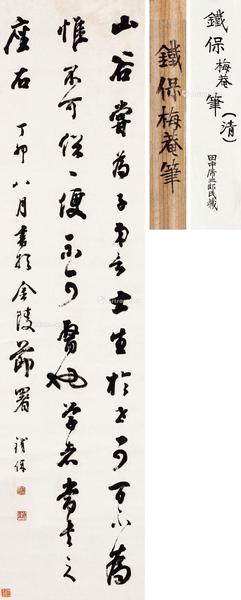 山谷嘗為子弟言士生於世可百不為
惟不可俗俗便不可醫也学者當書之
座右 丁卯八月書於金陵節署 鐵保
鐵保梅菴筆
鐵保梅菴筆(清)